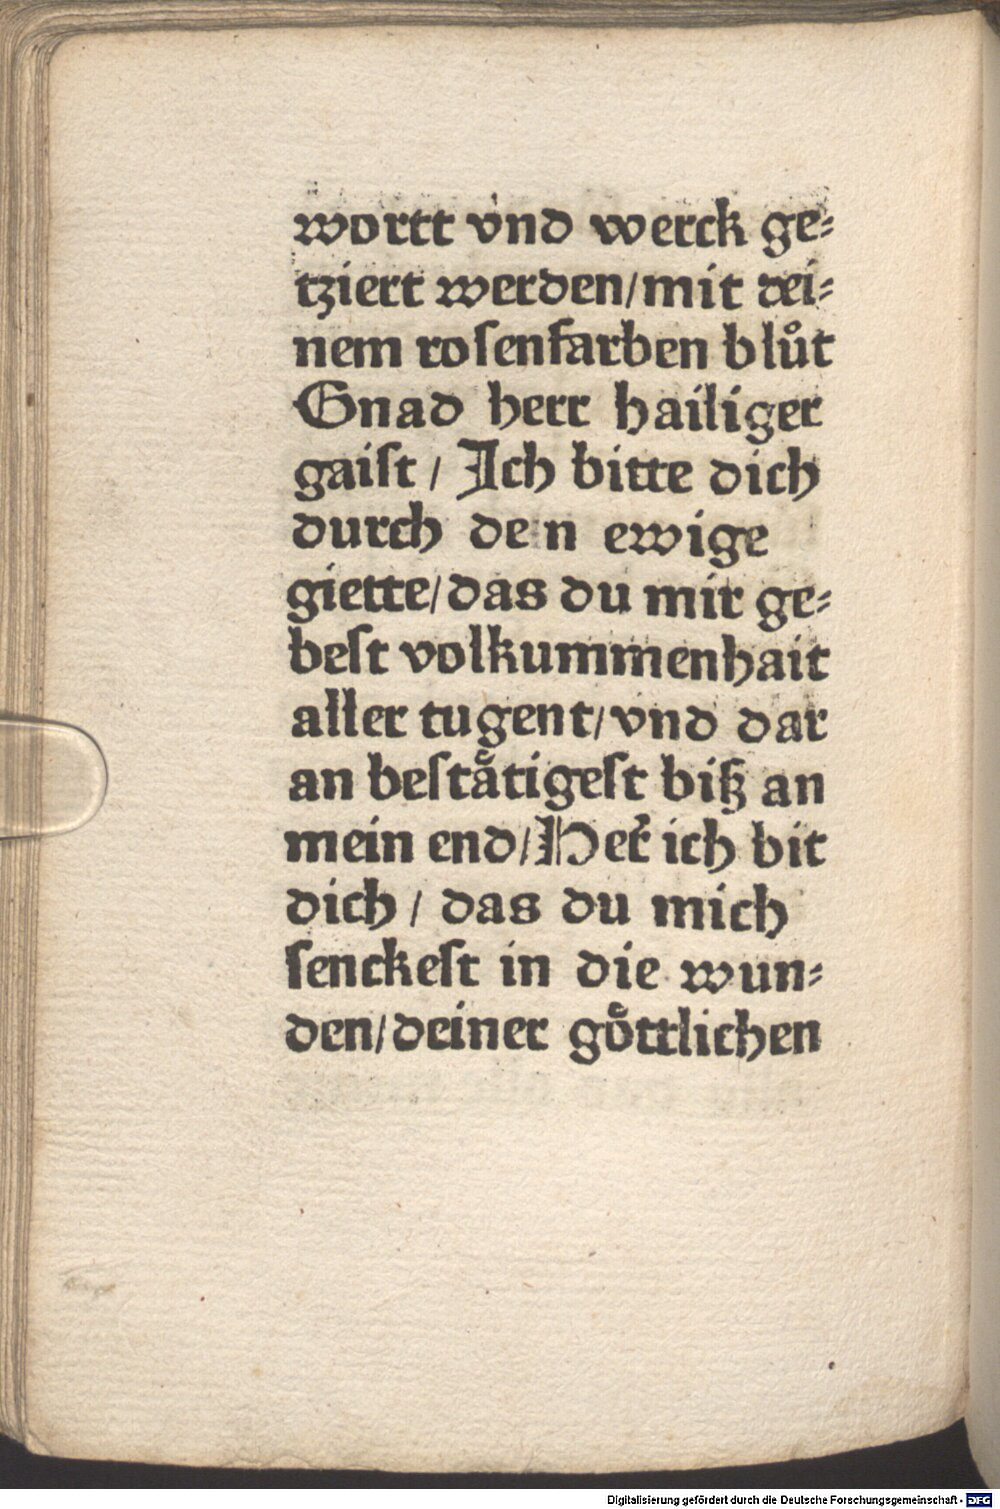 wortt vnd werck ge⸗
tziert werden/mit dei⸗
nem roſenfarben blůt
Gnad herr hailiger
gaiſt / Ich bitte dich
durch dein ewige
giette/das du mir ge⸗
beſt volkummenhait
aller tugent/vnd dar
an beſtaͤtigeſt biß an
mein end/Her̃ ich bit
dich / das du mich
ſenckeſt in die wun⸗
den/deiner goͤttlichen
Digitalisierung gefördert durch die Deutsche Forschungsgemeinschaft - DFG